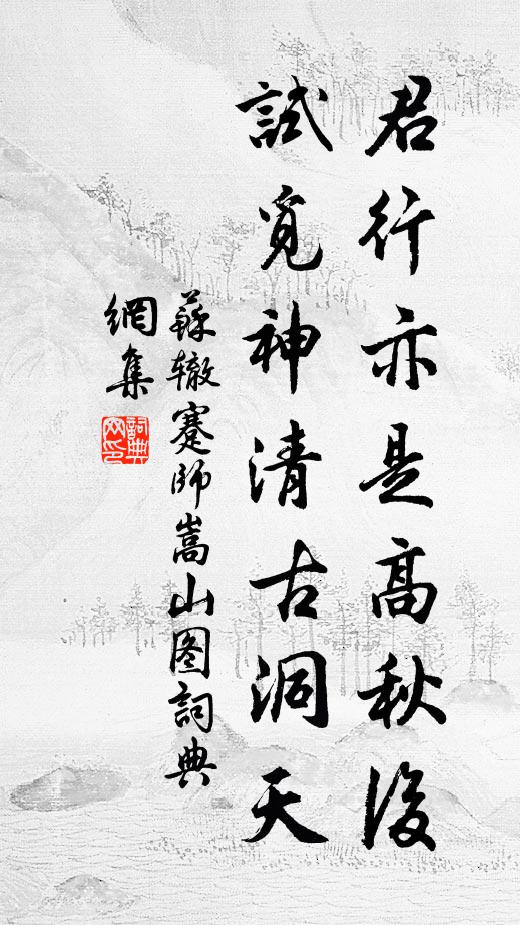 君行亦是高秋後
試覓神清古洞天
蘇辙蹇師嵩山图詞典
網集
詞典网印